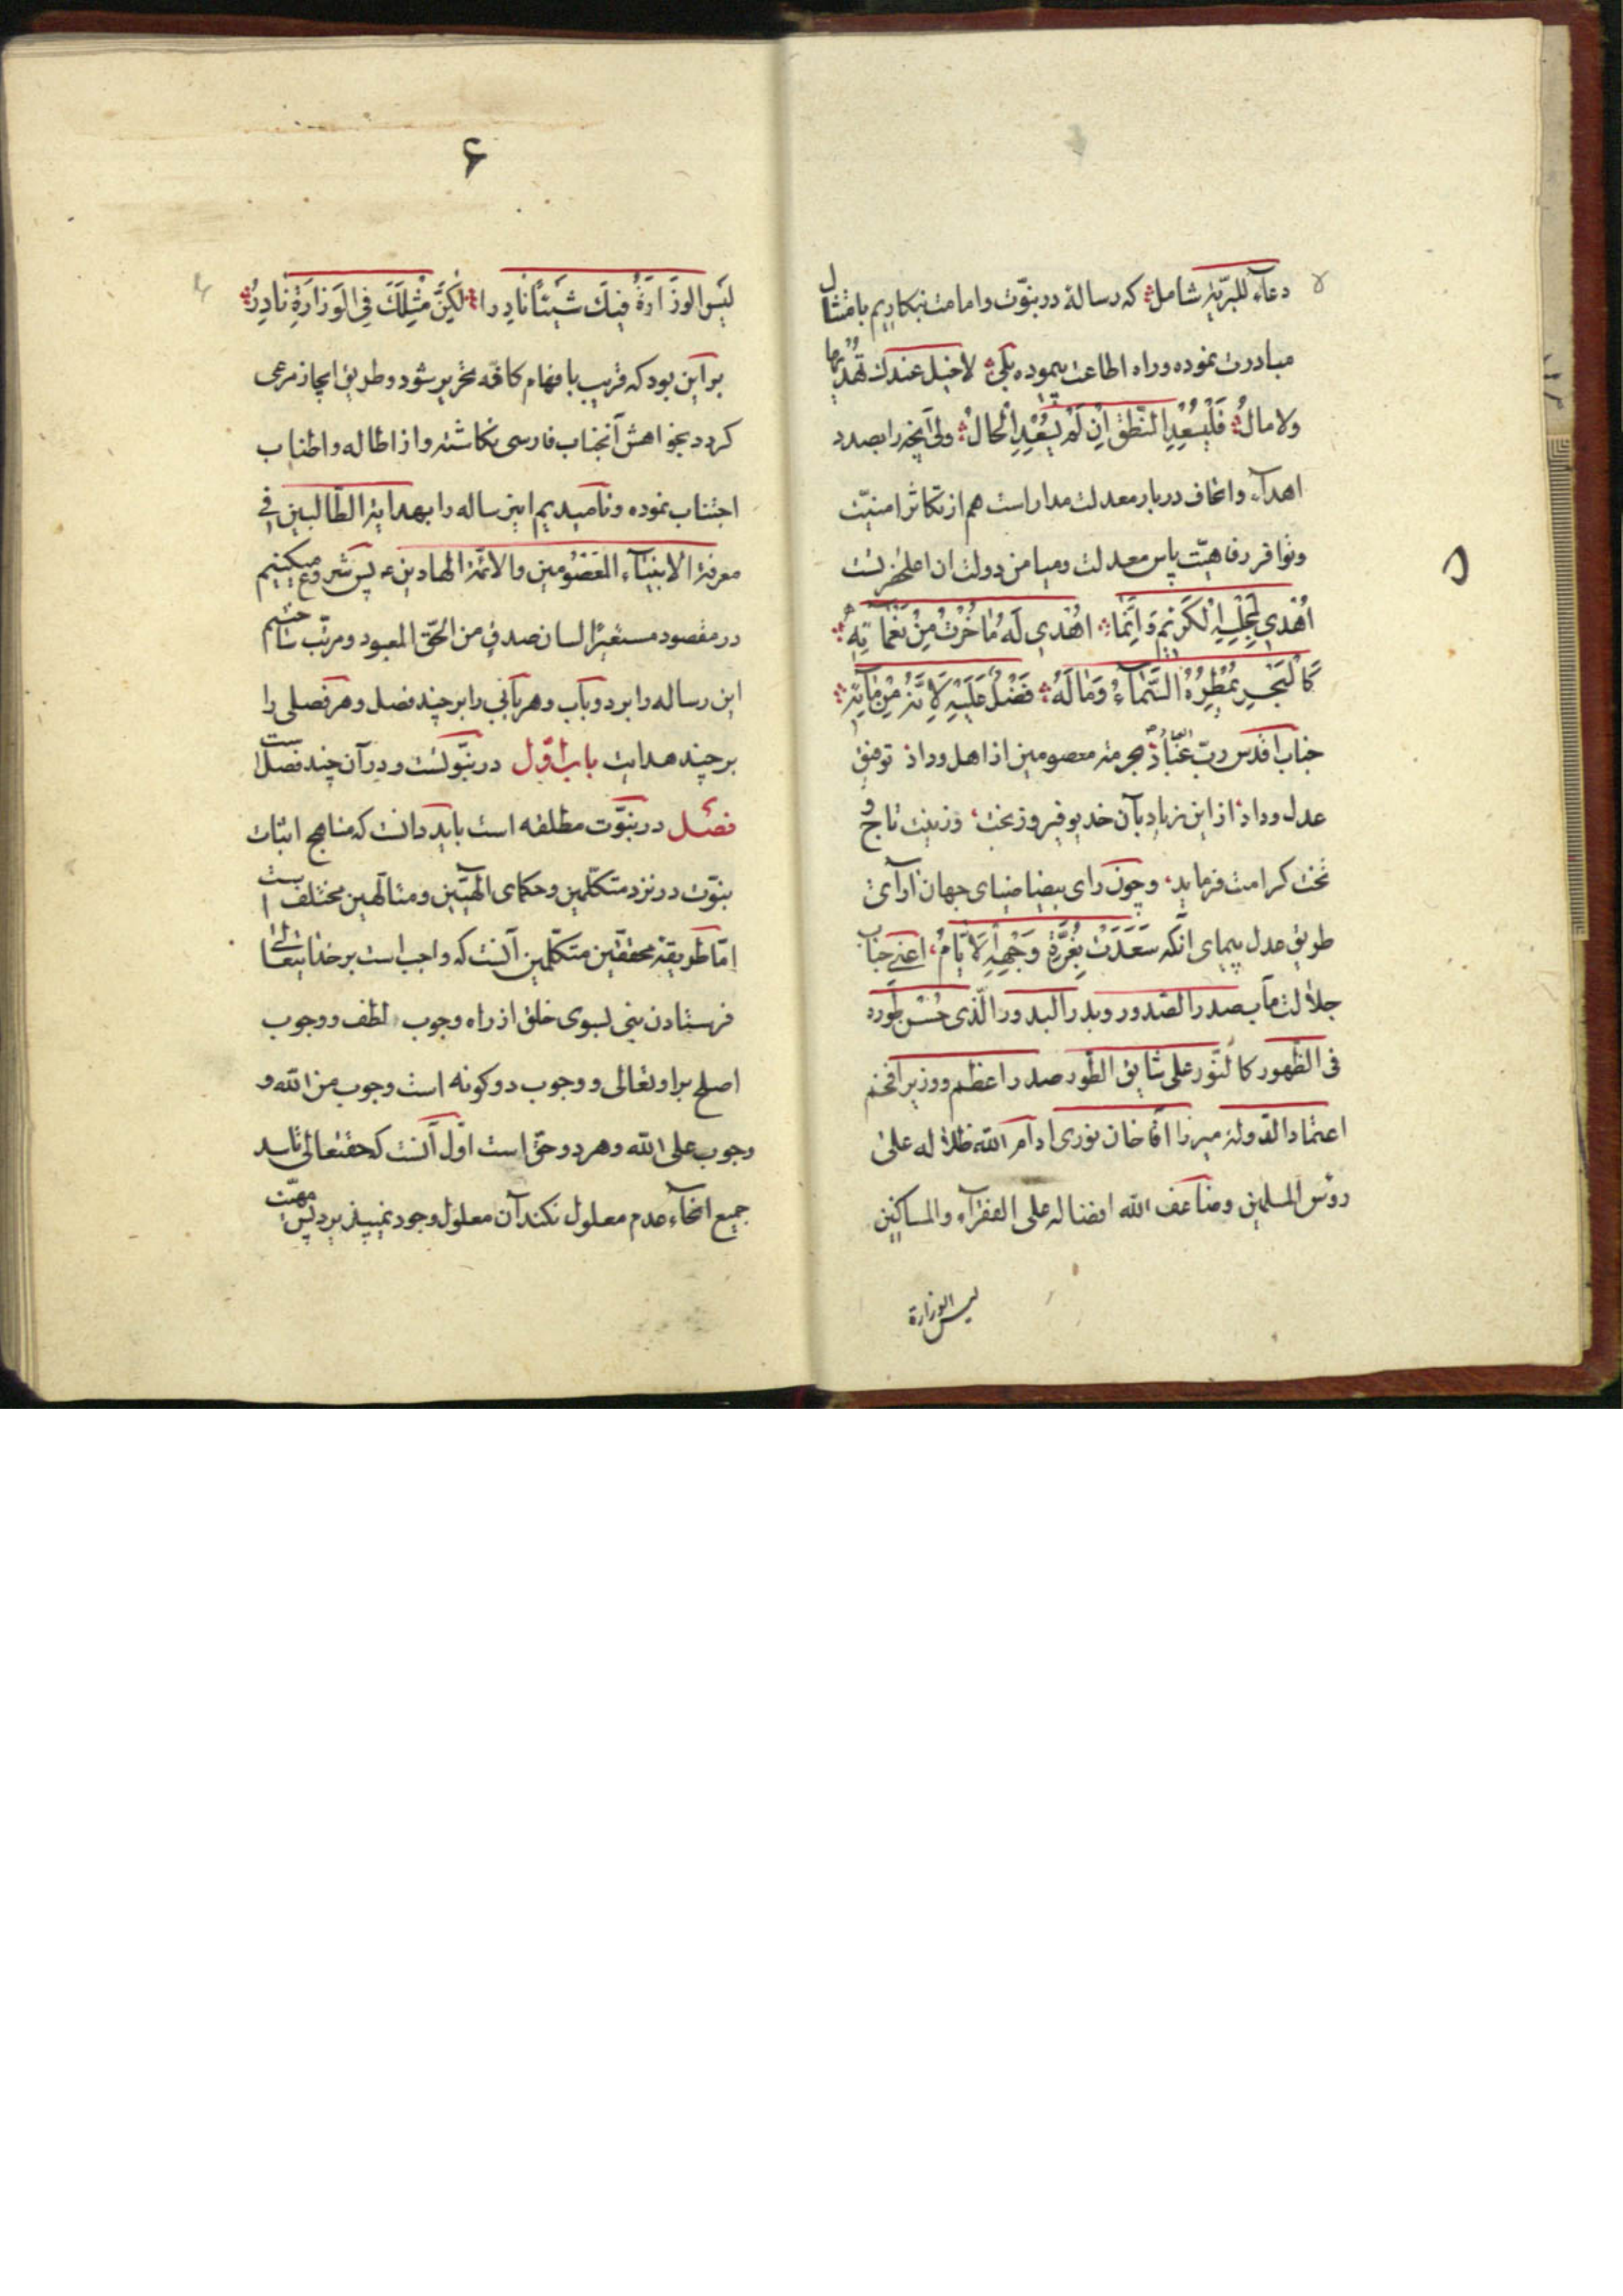 ۵
دعاء للبریّة شامل که رسالۀ در نبوّت و امامت بنکاریم بامتثال
مبادرت نموده و راه اطاعت پیموده بلی لا خیل عندک تهدیها
ولا مالُ فَلْیُسْعِدِ النّطْقُ اِنْ لَمْ یُسْعِدِ الْحالُ ولی آنچه را بصدد
اهداء و اتحاف دربار معدلت مدار است هم از تکاثر امنیّت
و توافر رفاهیّت پاس معدلت و میامن دولت ان اعلحضرتست
اُهْدی لِمَجْلِسِهِ الْکَریمِ وَ اِنَّما اُهْدی لَهُ مٰا حُزْتُ مِنْ نَعْمٰائِهِ
کَالْبَحْرِ یُمْطِرُهُ السَّمٰاءُ وَمٰا لَهُ فَضْلٌ عَلَیْهِ لِاَنَّهُ مِنْ مٰائِهِ
جناب اقدس ربّ عباد بحرمة معصومین از اهل وداد توفیق
عدل و داد از این زیاد بآن خدیو فیروز بخت، و زینت تاج و
تخت کرامت فرماید، و چون رای بیضا ضیای جهان آرآی
طریق عدل پیمای انکه سَعَدَتْ بِغُرَّةِ وَجْهِهِ الْاَیّامُ، اعنی جناب
جلالت مآب صدر الصّدور و بدر البدور الّذی حُسْن طَوره
فی الظّهور کالنّور علی شاهق الطّور صدر اعظم و وزیر افخم
اعتماد الدّولة میرزا آقا خان نوری ادام الله ظلاله علی
رؤس المسلمین و ضاعف الله افضاله علی الفقرآء والمساکین
لیس الوزارة
۶
لَیْسَ الوِزَارَةُ فیكَ شَیْئًا نادِرا لٰکِنَّ مِثْلَكَ فِی الْوَزارَةِ نادِرُ
بر این بود که قریب بافهام کافّه تحریر شود و طریق ایجاز مرعی
کردد بخواهش آنجناب فارسی نکاشته و از اطاله و اطناب
اجتناب نموده و نامیدیم این رساله را بهدایة الطّالبین فی
معرفة الانبیآء المعصومین والائمّة الهادین ع پس شروع میکنیم
در مقصود مستعیرًا لسان صدق من الحقّ المعبود و مرتّب ساختیم
این رساله را بر دو باب و هر بابی را بر چند فصل و هر فصلی را
بر چند هدایت باب اوّل در نبوّتست و در آن چند فصل است
فصل در نبوّت مطلقه است باید دانست که مناهج اثبات
نبوّت در نزد متکلّمین و حکمای الهیّین و متالّهین مختلف است
امّا طریقۀ محققّین متکلّمین آنست که واجب است بر خدایتعالی
فرستادن نبی بسوی خلق از راه وجوب لطف و وجوب
اصلح بر او تعالی و وجوب دو کونه است وجوب من الله و
وجوب علی الله و هر دو حقّ است اوّل آنست که حقتعالی تا سد
جمیع انحآء عدم معلول نکند آن معلول وجود نمیپذیرد پس